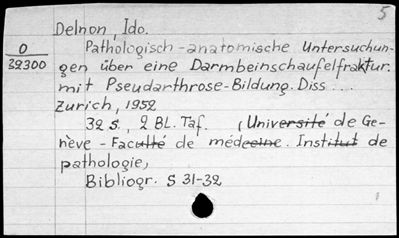 5
Delnon, Ido.
O
32300
Pathologisch-anatomische Untersuchun-
gen über eine Darmbeinschaufelfraktur.
mit Pseudarthrose-Bildung. Diss...
Zürich, 1952
32 s., 2 BL. Taf. (Université de Ge-
nève - Faculté de médecine. Institut de
pathologie,
Bibliogr. S 31-32